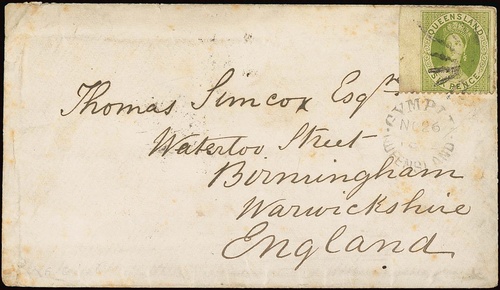 QUEENSLAND
SIX PENCE
Thomas Simcox Esqre
Waterloo Street
Birmingham
Warwickshire
England
GYMPIE
NO 26
QUEENSLAND